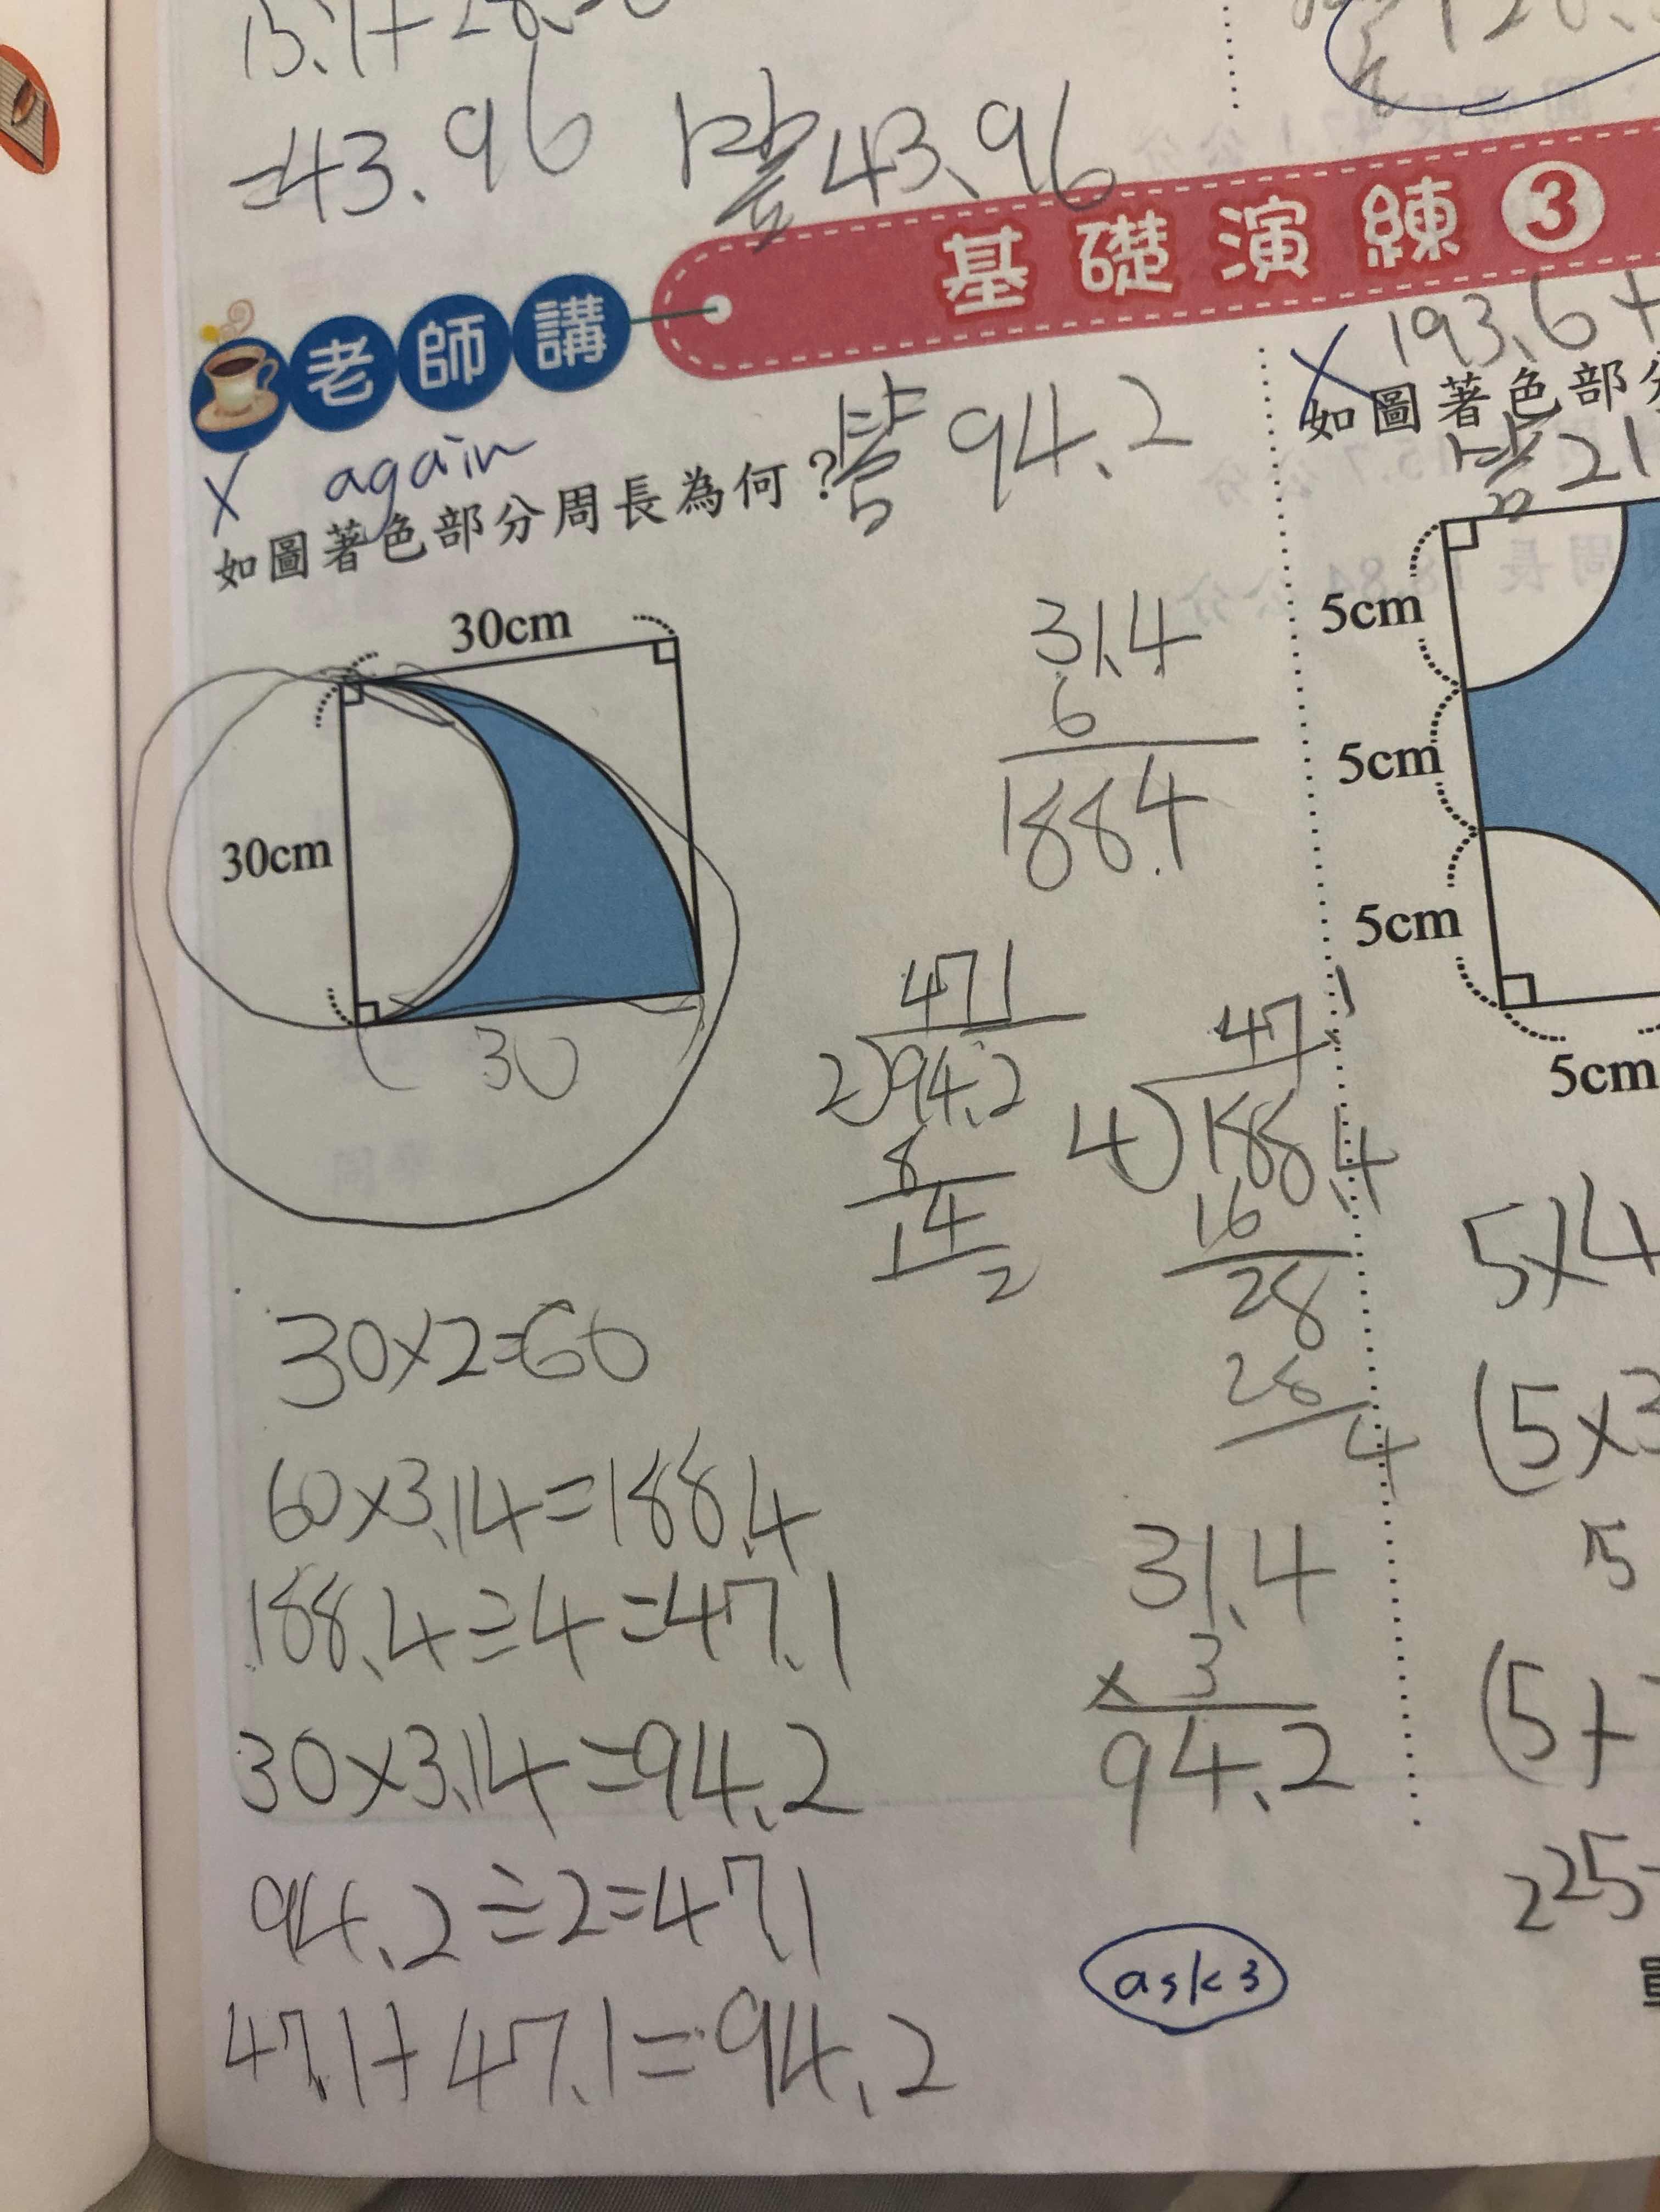 =43.96 答43.96
老師講 基礎演練3
X again
如圖著色部分周長為何？答94.2
30cm
30cm
30
31.4
6
188.4
47.1
2)94.2
8
14
2
47.1
4)188.4
16
28
28
4
30×2=60
60×3.14=188.4
188.4÷4=47.1
30×3.14=94.2
94.2÷2=47.1
47.1+47.1=94.2
31.4
×3
94.2
ask3
X 193.6+
如圖著色部分
答21
5cm
5cm
5cm
5cm
5×4
(5×3
5
225